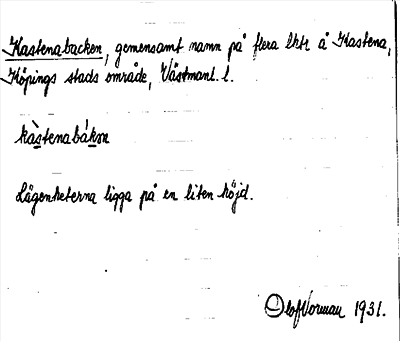 Kastenabacken, gemensamt namn på flera lhtr å Kastena,
Köpings stads område, Västmanl. l.
kàstenabákən
Lägenheterna ligga på en liten höjd.
Olof Norman 1931.